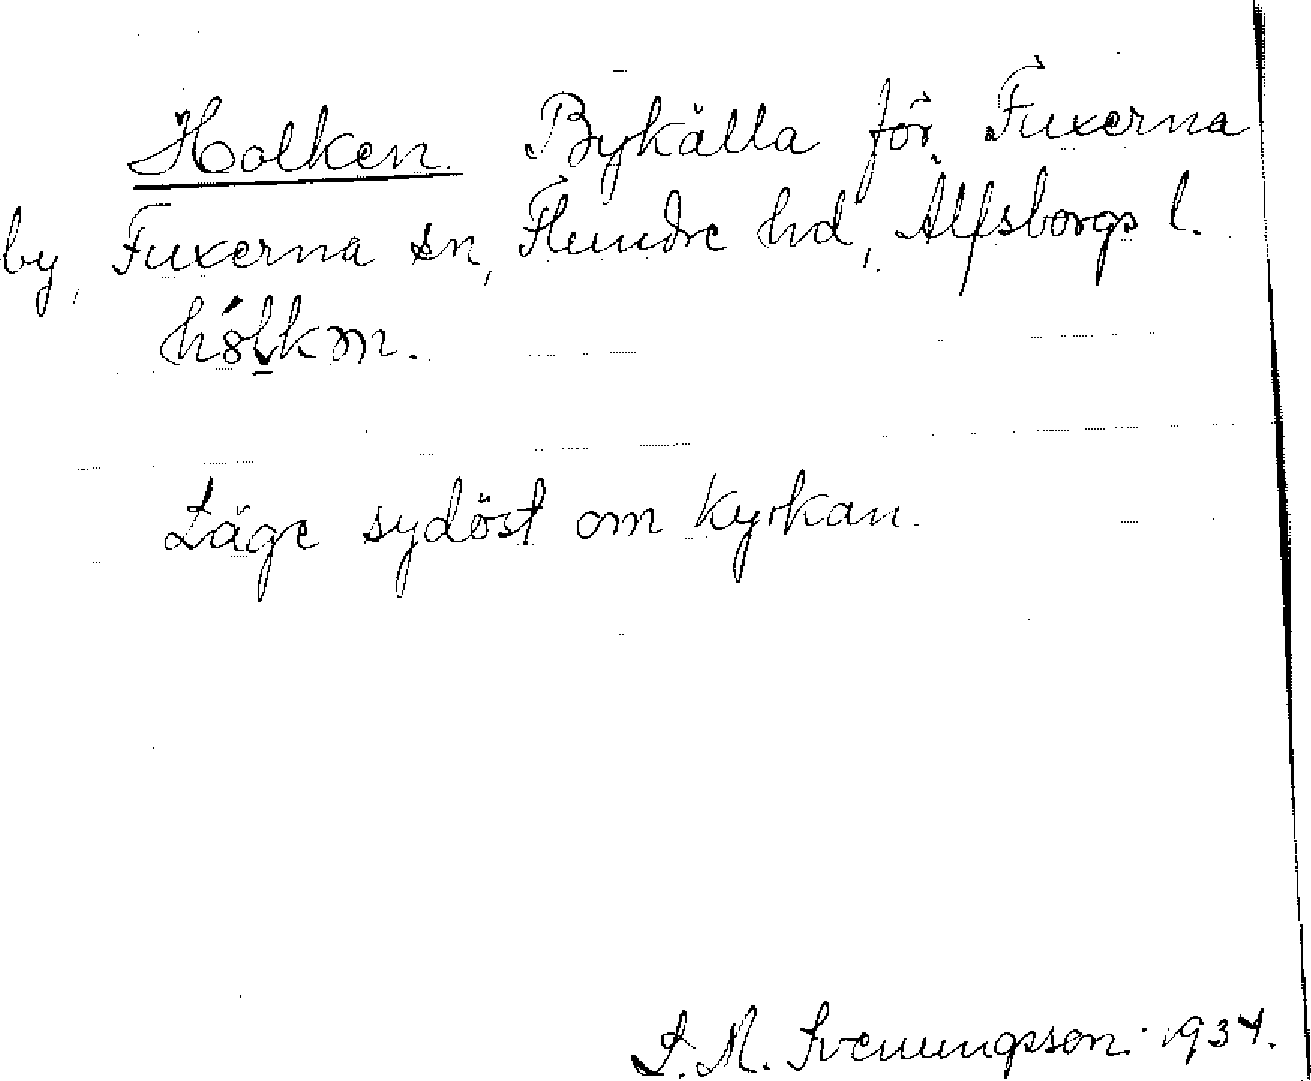 Holken. Bykälla för Fuxerna
by, Fuxerna sn, Flundre hd, Älfsborgs l.
Läge sydöst om kyrkan.
S. M. Svenungsson. 1934.